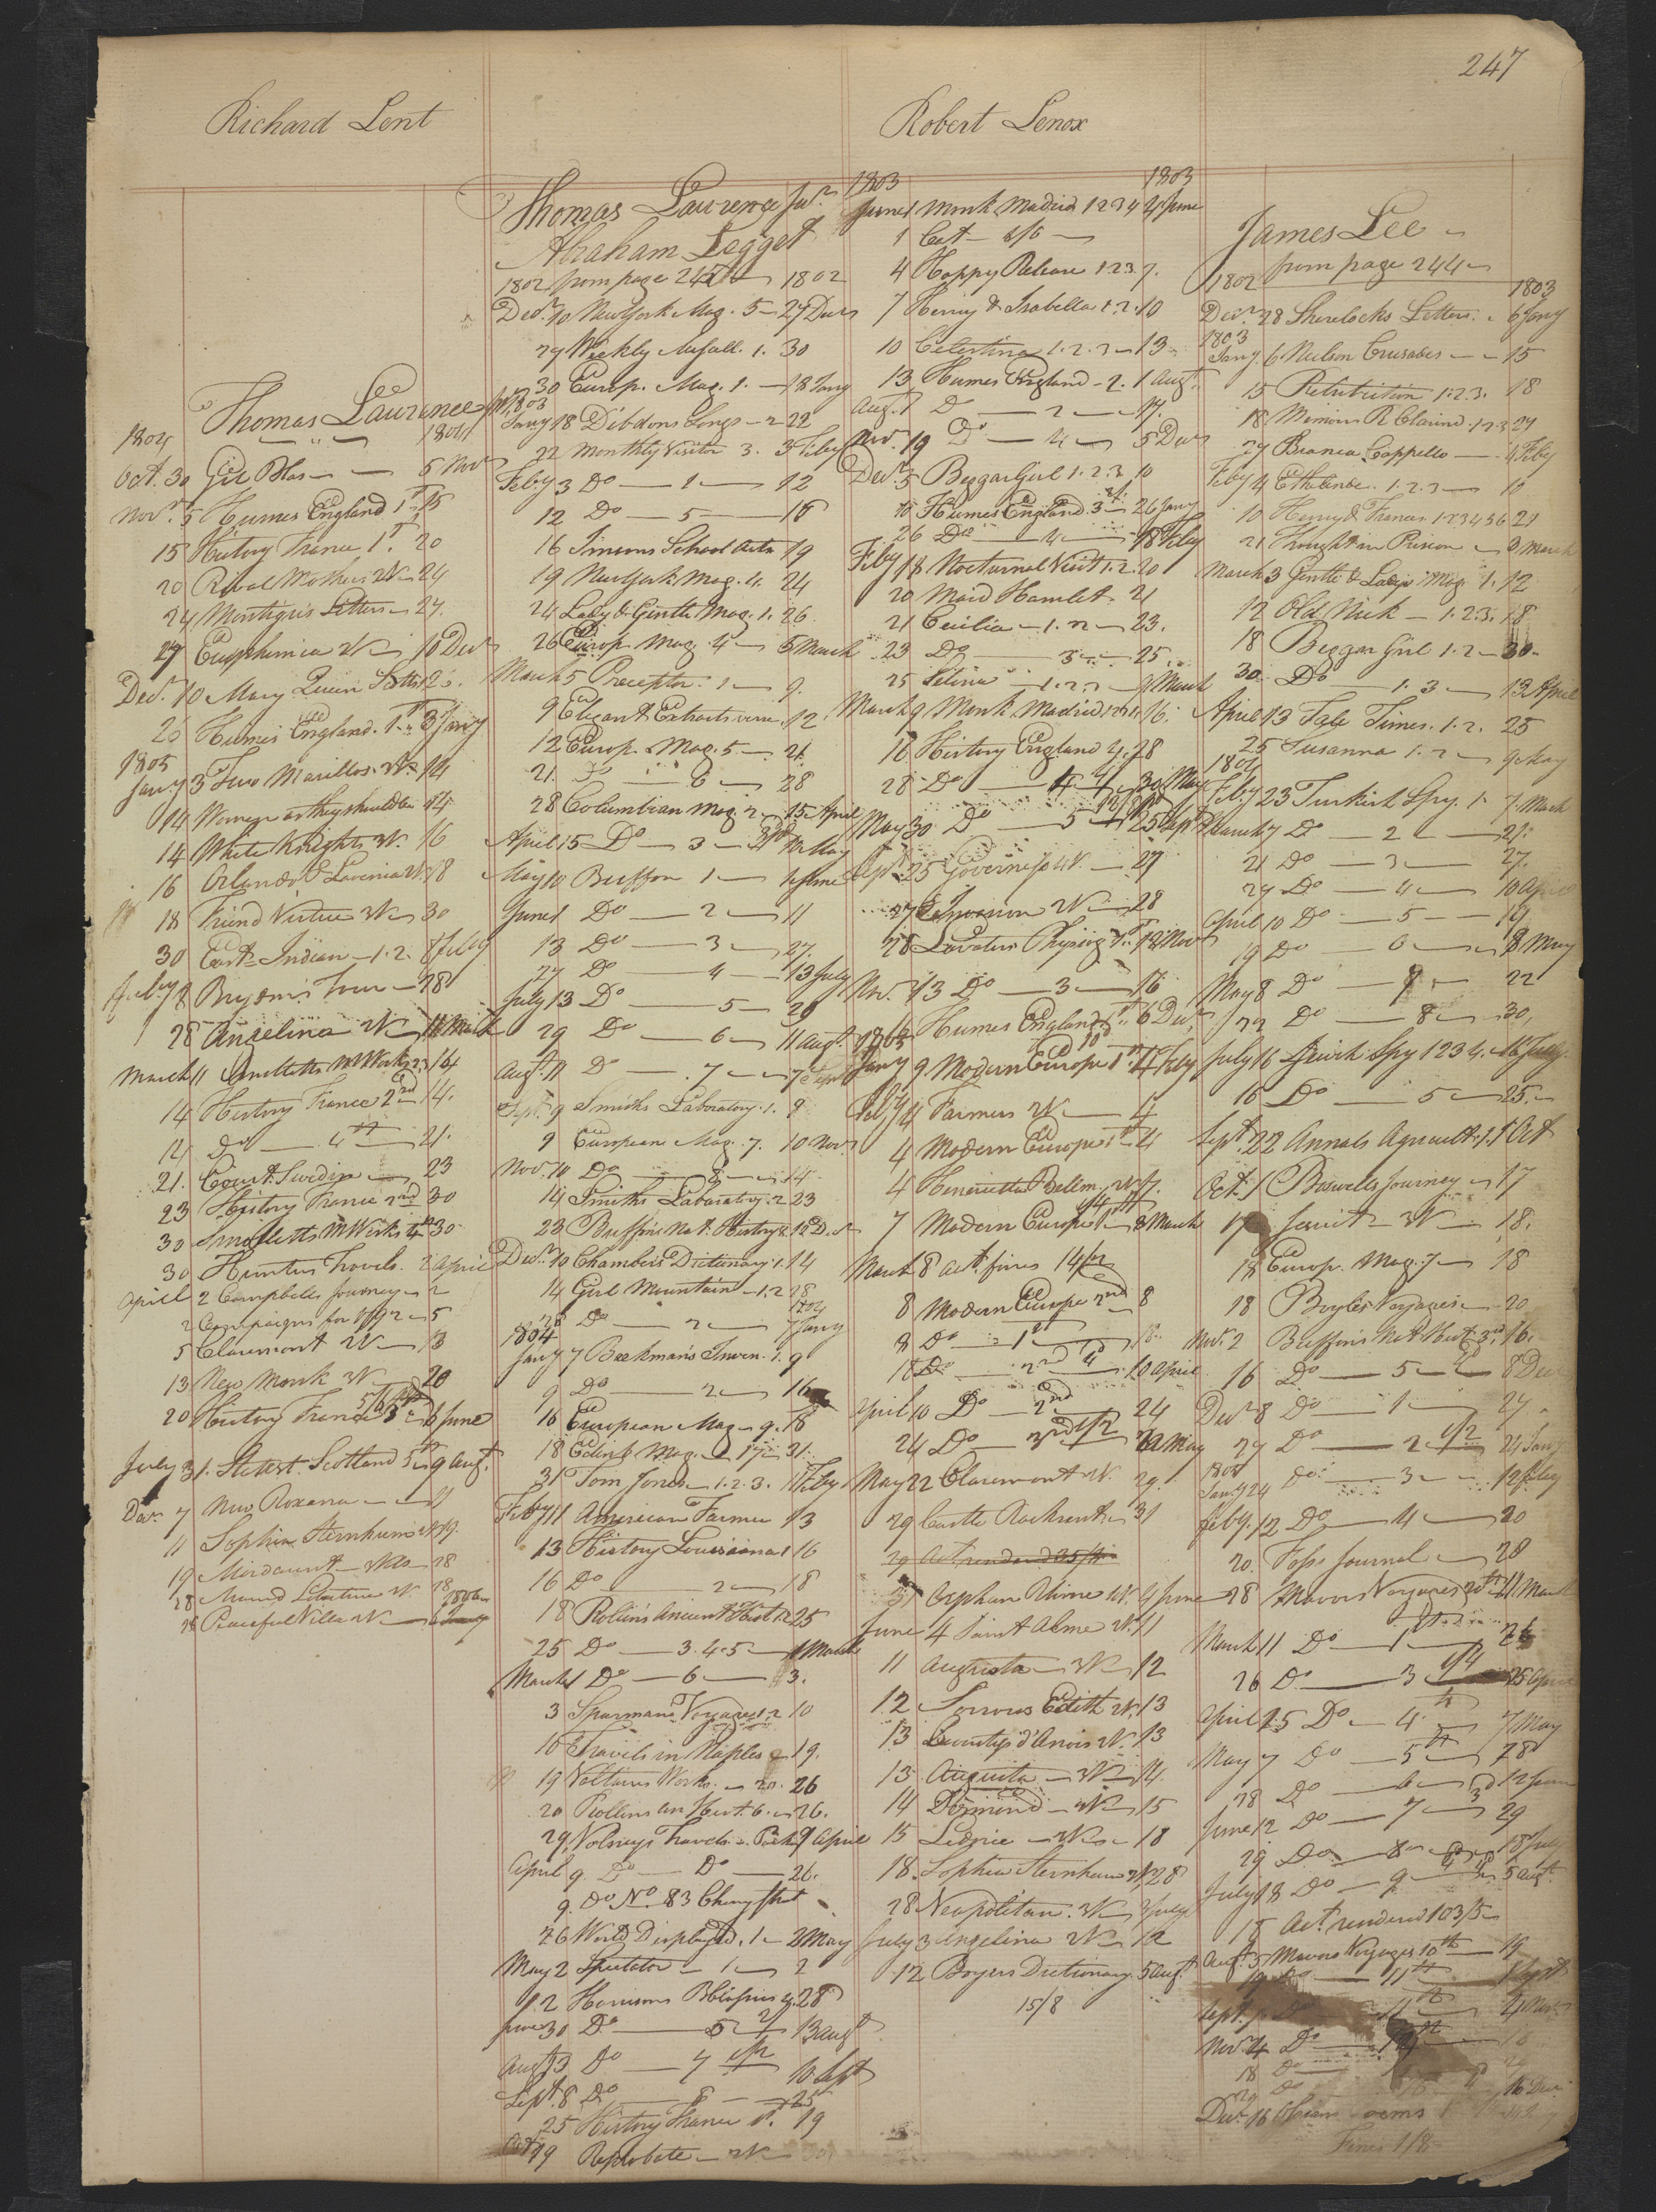 247
Richard Lent
Thomas Lawrence
1804 1804
Oct. 30 Gil Blas 5 Nov
Nov. 5 Humes England 1 15
15 History France 1 20
20 Rival Mothers 2V 24
24 Montague's Letters 27
27 Eusphemia 2V 10 Decr
Decr. 10 Mary Queen Scotts 1 26
26 Humes England 1 3 Jany
1805
Jany 3 Two Marillos 2V 14
14 Woman as they should be 14
14 White Knights 2V 16
16 Orlando & Lavinia 2V 18
18 Friend Virtue 3V 30
30 East Indian 1.2. 8 Feby
Feby 8 Brydon's Tour 28
28 Angelina 2V 11 March
March 11 Smolletts M Works 2.3 14
14 History France 2nd 14
14 Do 4th 21
21 Court Sweden 23
23 History France 2nd 30
30 Smolletts M Works 4th 30
30 Hunters Travels 2 April
April 2 Campbells Journey 2
2 Campaigns for 1792 5
5 Claremont 2V 13
13 New Monk 3V 20
20 History France 3 6 June
July 31 Stewart Scotland 5/ 9 Aug.
Dec 7 New Roxana 11
11 Sophia Sternheim 2V 19
19 Mordaunt 3Vo 28
28 Literature 2V 28
28 Peaceful Villa 2V 6 Jany
Thomas Lawrence Junr
Abraham Legget
1802 from page 245 1802
Decr. 10 New York Mag. 5 27 Decr
27 Weekly 1. 30
30 Europ. Mag. 1. 18 Jany
1803
Jany 18 Dibdons Songs 2 22
22 Monthly Visitor 3. 3 Feby
Feby 3 Do 1 12
12 Do 5 16
16 Simsons School Acts 19
19 New York Mag. 4. 24
24 Lady & Gentle Mag. 1. 26
26 Europ. Mag. 4 5 March
March 5 Preceptor 1 9.
9 Elegant Extracts verse 12
12 Europ. Mag. 5 21
21 Do 6 28
28 Columbian Mag. 2 15 April
April 15 Do 3 10 May
May 10 Buffon 1 1 June
June 1 Do 2 11
13 Do 3 27.
27 Do 4 13 July
July 13 Do 5 29
29 Do 6 11 Augt.
Augt. 11 Do 7 7 Sept
Sept. 9 Smiths Laboratory 1. 9
9 European Mag. 7. 10 Nov
Nov. 10 Do 8 14
14 Smiths Laboratory 2 23
23 Buffons Nat. History 8. 10 Decr
Decr. 10 Chambers Dictionary 1. 14
14 Girl Mountain 1.2 28
1804
28 Do 2 7 Jany
1804
Jany 7 Beekmans Inven. 1. 9
9 Do 2 16
16 European Mag. 9. 18
18 Eding Mag. 17 31
31 Tom Jones 1.2.3. 11 Feby
Feby 11 American Farmer 13
13 History Louisiana 1 16
16 Do 2 18
18 Rolins Ancient Hist 1.2 25
25 Do 3.4.5 1 March
March 1 Do 6 3.
3 Sparmans Voyages 1.2 10
10 Travels in Naples 19.
19 Voltairs Works 20. 26
20 Rollins An Hist. 6. 26.
29 Volneys Travels 9 April
April 9. Do Do 26.
9. Do No. 83 Cherry Street
26 World Displayed 1 2 May
May 2 Spectator 1 2
12 Harrisons 4. 28
June 30 Do 5 13 Augt
Augt 13 Do 7 10 Sept
Sept. 8 Do 8 25
25 History France 1. 19
Oct 19 Reprobate 2V
Robert Lenox
1803 1803
June 1 Monk Madrid 1 2 3 4 4 June
1 Cat 6/6
4 Happy Release 1.2.3 7.
7 Henry & Isabella 1.2. 10
10 Celestina 1.2.3 13
13 Humes England 2. 1 Augt.
Augt. 1 Do 2 19.
Nov. 19 Do 4 5 Decr
Decr. 5 Beggar Girl 1.2.3 10
10 Humes England 3 26 Jany
26 Do 4 18 Feby
Feby 18 Nocturnal Visit 1.2. 20
20 Maid Hamlet 21
21 Cecilia 1.2 23.
23 Do 3 25
25 Selina 1.2.3 9 March
March 9 Monk Madrid 1 2 3 4. 16.
16 History England 4. 28
28 Do 4 30 May
May 30 Do 5 25 Sept
Sept. 25 Governess 4V. 27
27 Invasion 2V 28
28 Lavaters Physiog. 1st 13 Nov
Nov. 13 Do 3 16
16 Humes England 5th 6 Decr
1805
Jany 9 Modern Europe 1st 4 Feby
Feby 4 Farmers 2V 4
4 Modern Europe 1st 4
4 Henrietta Belem. 2V 7.
7 Modern Europe 1st 8 March
March 8 Act. fines 14/
8 Modern Europe 2nd 8
8 Do 1st 18
18 Do 2nd 10 April
April 10 Do 2nd 24
24 Do 3rd 22 May
May 22 Claremont 2V. 29.
29 Castle Rackrent 31
29 Act rendered 35/
31 Orphan Rhine 2V. 4 June
June 4 Saint Alme 2V. 11
11 Augusta 3V 12
12 Sorrows Edith 2V. 13
13 Countess d'Anois 2V. 13
13 Augusta 3V 14.
14 Desmend 2V 15
15 Lidorie 2V 18
18. Sophia Sternheim 2V 28
28 Neopolitan 3V 3 July
July 3 Angelina 2V 12
12 Boyers Dictionary 5 Augt.
15/8
James Lee
from page 244
1802 1803
Decr. 28 Sherelocks Letters 6 Jany
1803
Jany. 6. Neilson Crusades 15
15 Retribution 1.2.3. 18
18 Memoirs R Clarind. 1.2.3 27
27 Bianca Cappello 4 Feby
Feby 4 Ethelinde 1.2.3 10
10 Henry & Frances 1 2 3 4 5 6 21
21 Thoughts in Prison 3 March
March 3 Gentle & Ladys Mag. 1. 12
12 Old Nick 1.2.3. 18
18 Beggar Girl 1.2 30
30 Do 1.3 13 April
April 13 Tale Times. 1.2. 25
25 Susanna 1.2 9 May
1804
Feby 23 Turkish Spy. 1 7 March
March 7 Do 2 21.
21 Do 3 27.
27 Do 4 10 April
April 10 Do 5 19
19 Do 6 8 May
May 8 Do 7 22
22 Do 8 30
July 16 Jewish Spy 1 2 3 4. 16 July
16 Do 5 25.
Sept. 22 Annals Agricult. 1. 1 Oct
Oct. 1 Boswells Journey 17
17 Jesuit 3V 18.
18 Europ. Mag. 7 18
18 Boyles Voyages 20
Nov. 2 Buffons Nat. Hist. 3rd 16.
16 Do 5 8 Dec
Decr 8 Do 1 27
27 Do 2 24 Jany
1805
Jany 24 Do 3 12 Feby
Feby. 12 Do 4 20
20. Foss Journal 28
28 Mavors Voyages 20th 11 March
March 11 Do 1 26
26 Do 3 25 April
April 25 Do 4th 7 May
May 7 Do 5th 28
28 Do 6 12 June
June 12 Do 7 29
29 Do 8 18 July
July 18 Do 9 5 Augt.
18 Act. rendered 103/5
Augt. 5 Mavors Voyages 10th 19
19 Do 11th
Sept. Do 4 Nov.
Nov. 4 Do
18 Do
29 Do 16 Dec
Decr. 16
Fines 1/8